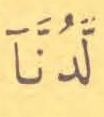 لَّدُنَّآ